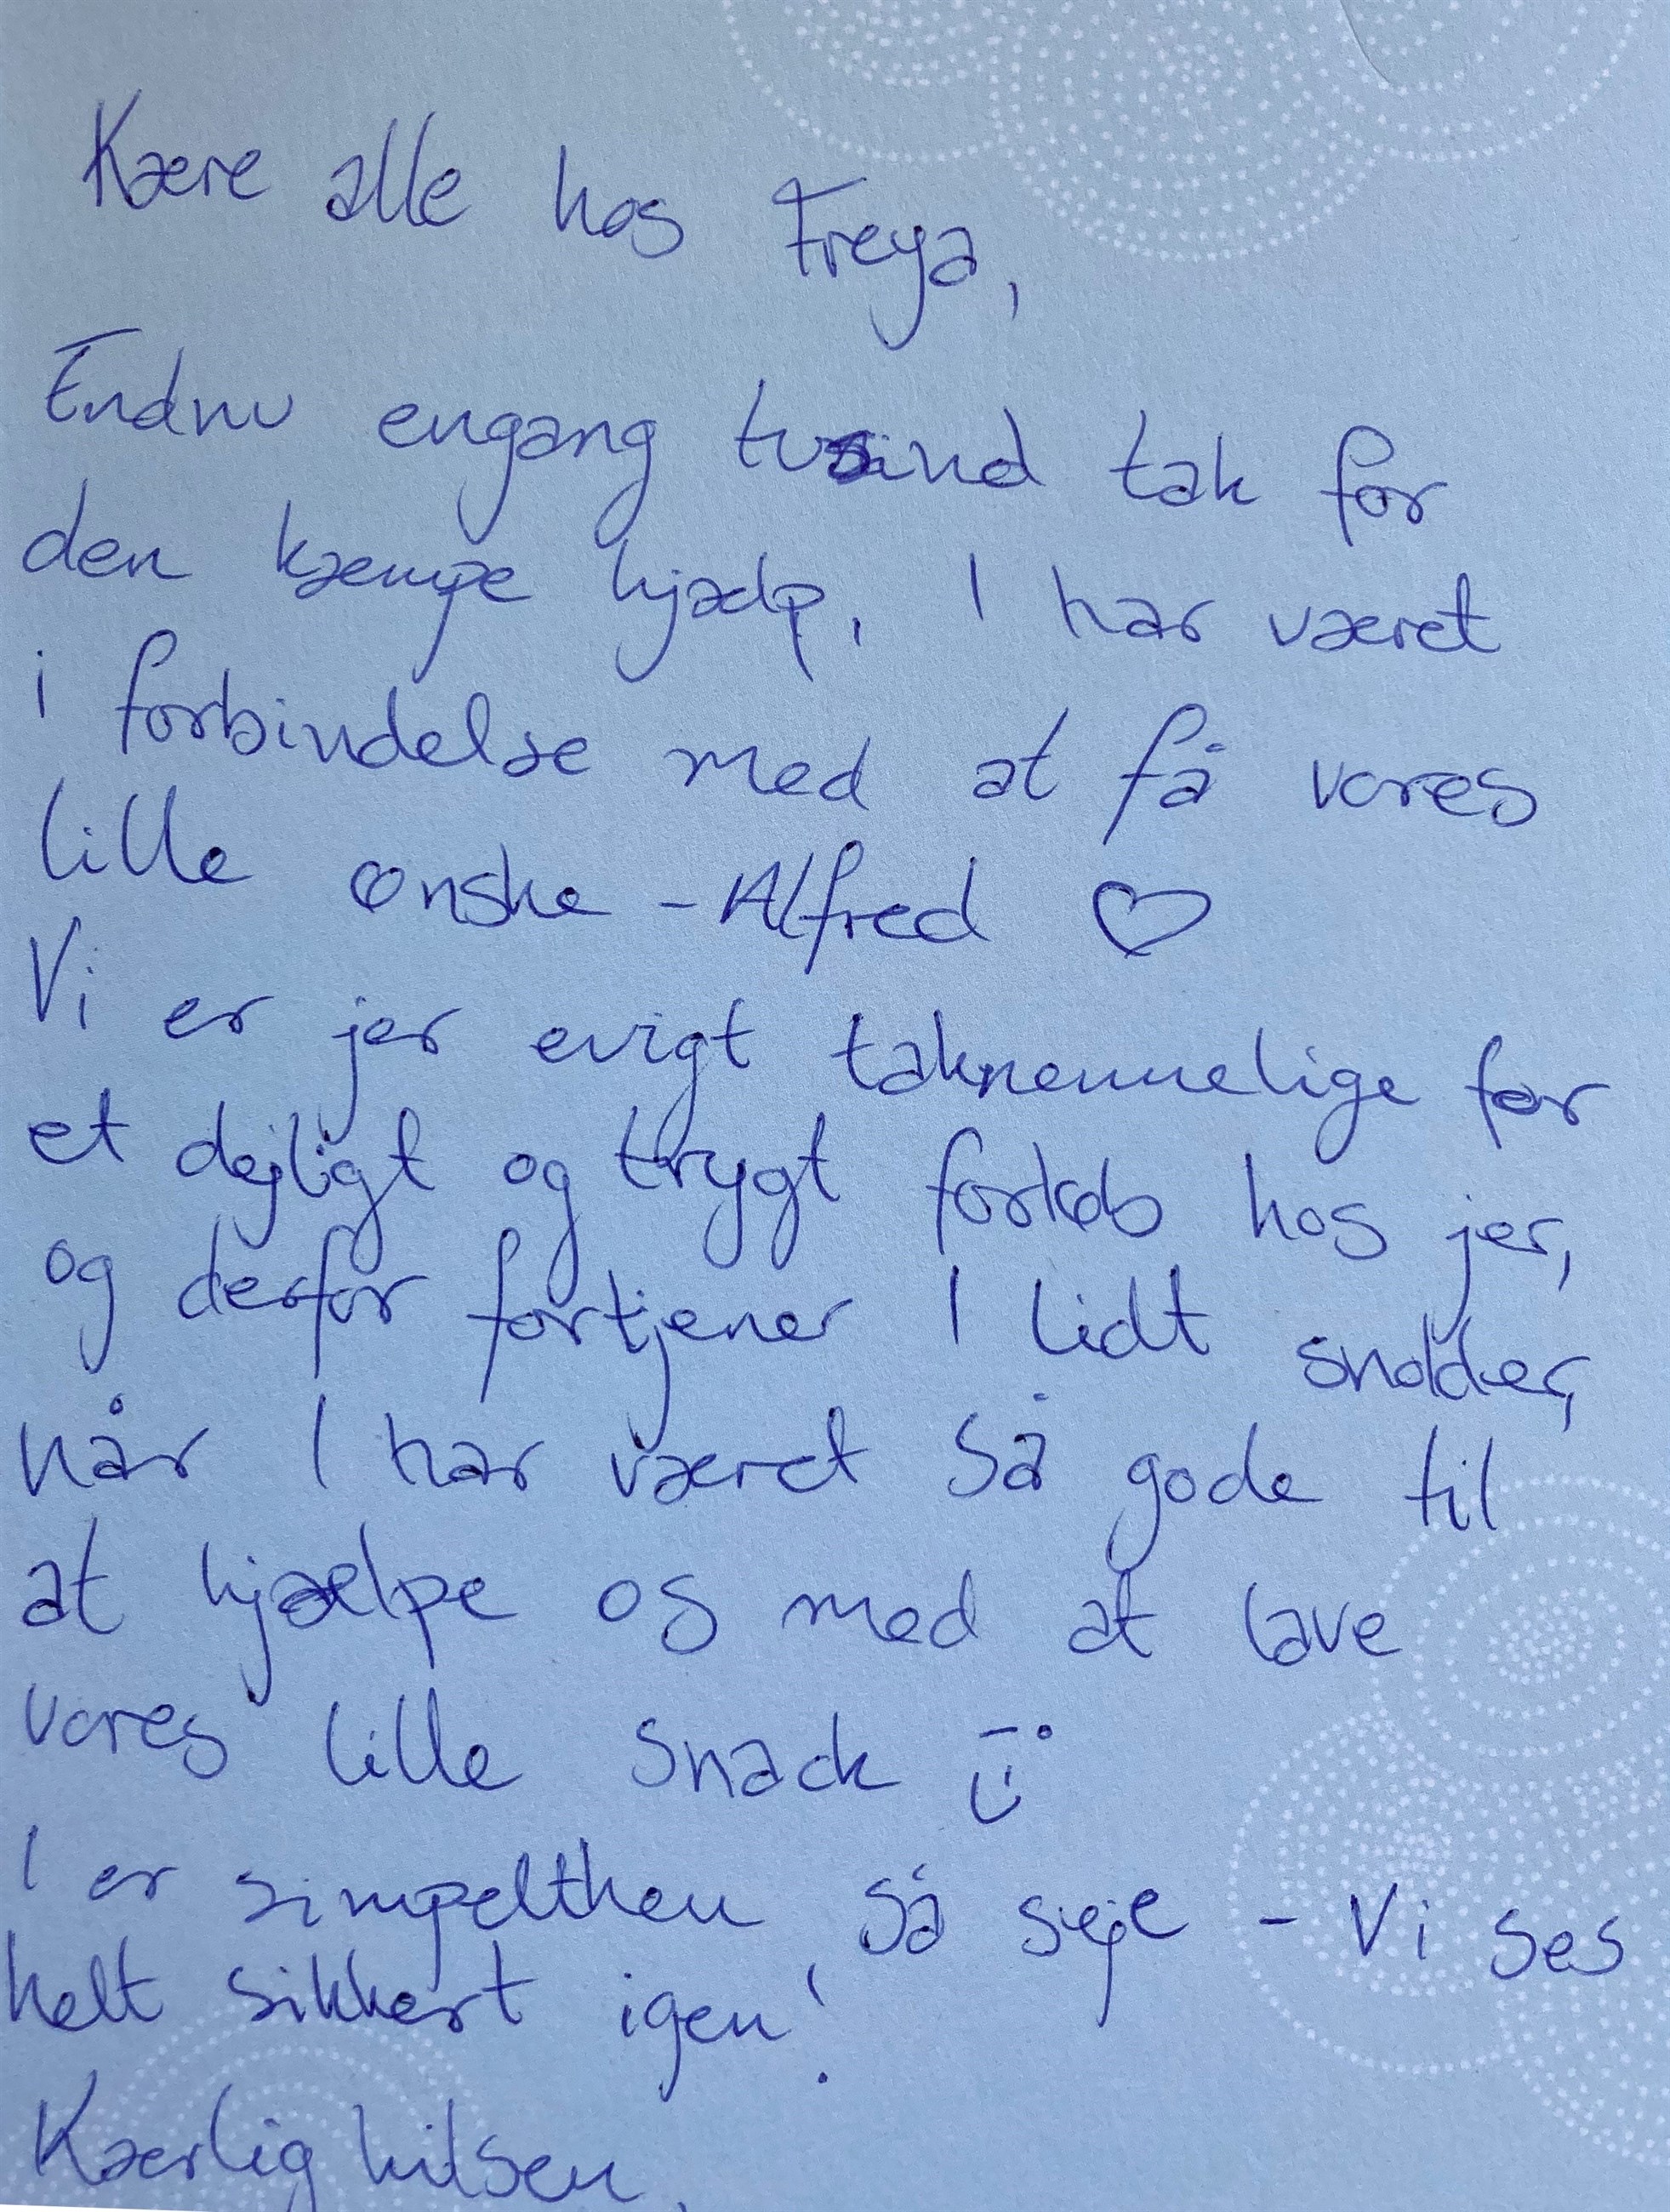 Kære alle hos Freya,
Endnu engang tusind tak for
den kæmpe hjælp, I har været
i forbindelse med at få vores
lille ønske - Alfred ♡
Vi er jer evigt taknemmelige for
et dejligt og trygt forløb hos jer,
og derfor fortjener I lidt snolder,
når I har været så gode til
at hjælpe os med at lave
vores lille snack
I er simpelthen så seje - Vi ses
helt sikkert igen!
Kærlig hilsen,